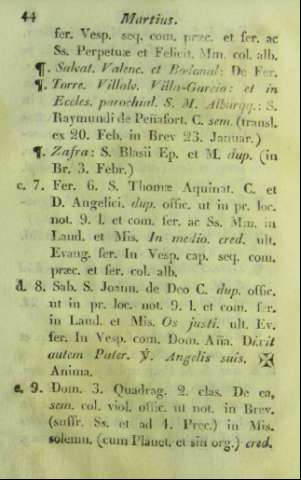 44 Martius.
fer. Vesp. seq. com. præc. et fer. ac
Ss. Perpetuæ et Felicit. Mm. col. alb.
¶. Salvat. Valenc. et Bodonal: De Fer.
¶. Torre. Villalv. Villa-Garcia: et in
Eccles. parochial. S. M. Alburqq.: S.
Raymundi de Peñafort. C. sem. (transl.
ex 20. Feb. in Brev 23. Januar.)
¶. Zafra: S. Blasii Ep. et M. dup. (in
Br. 3. Febr.)
c. 7. Fer. 6. S. Thomæ Aquinat. C. et
D. Angelici. dup. offic. ut in pr. loc.
not. 9. l. et com. fer. ac Ss. Mm. in
Laud. et Mis. In medio. cred. ult.
Evang. fer. In Vesp. cap. seq. com.
præc. et fer. col. alb.
d. 8. Sab. S. Joann. de Deo C. dup. offic.
ut in pr. loc. not. 9. l. et com. fer.
in Laud. et Mis. Os justi. ult. Ev.
fer. In Vesp. com. Dom. Aña. Dixit
autem Pater. ℣. Angelis suis. ✠
Anima.
e. 9. Dom. 3. Quadrag. 2. clas. De ea,
sem. col. viol. offic. ut not. in Brev.
(suffr. Ss. et ad 1. Prec.) in Mis.
solemn. (cum Planet. et sin org.) cred.